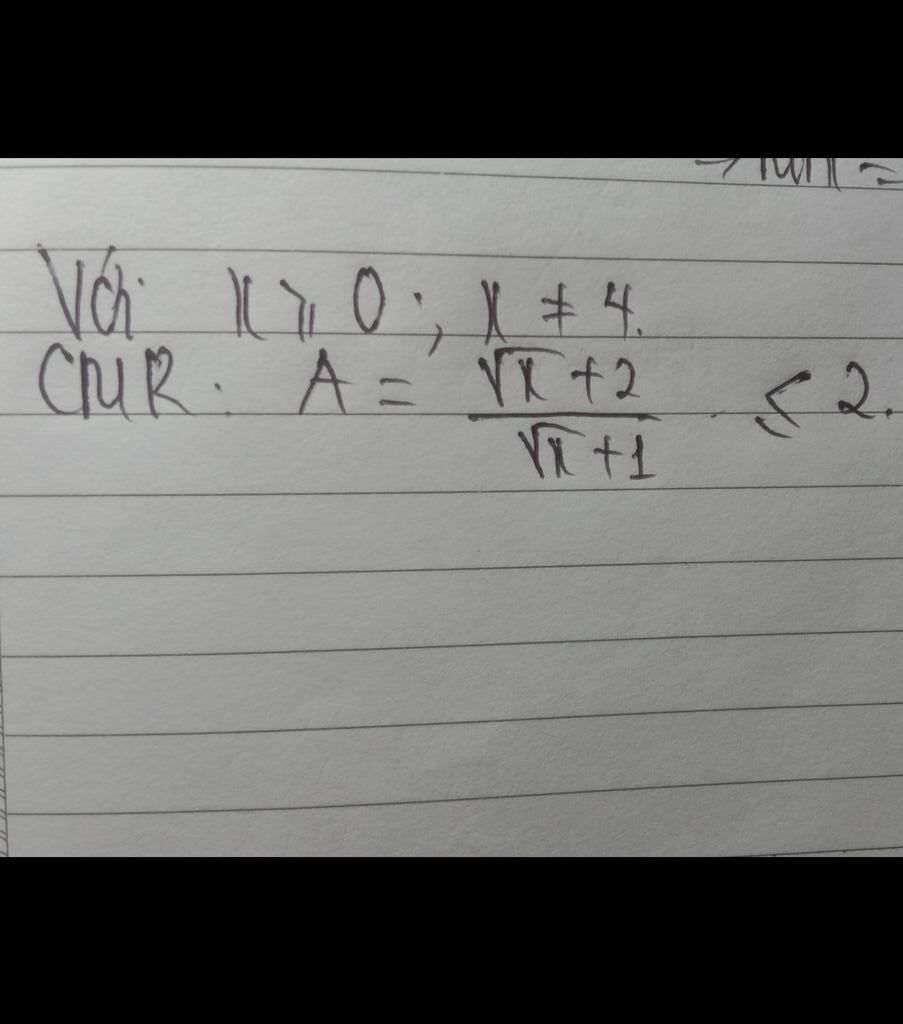 Với x ⩾ 0; x ≠ 4.
CMR: A = (√x + 2)/(√x + 1) ≤ 2.